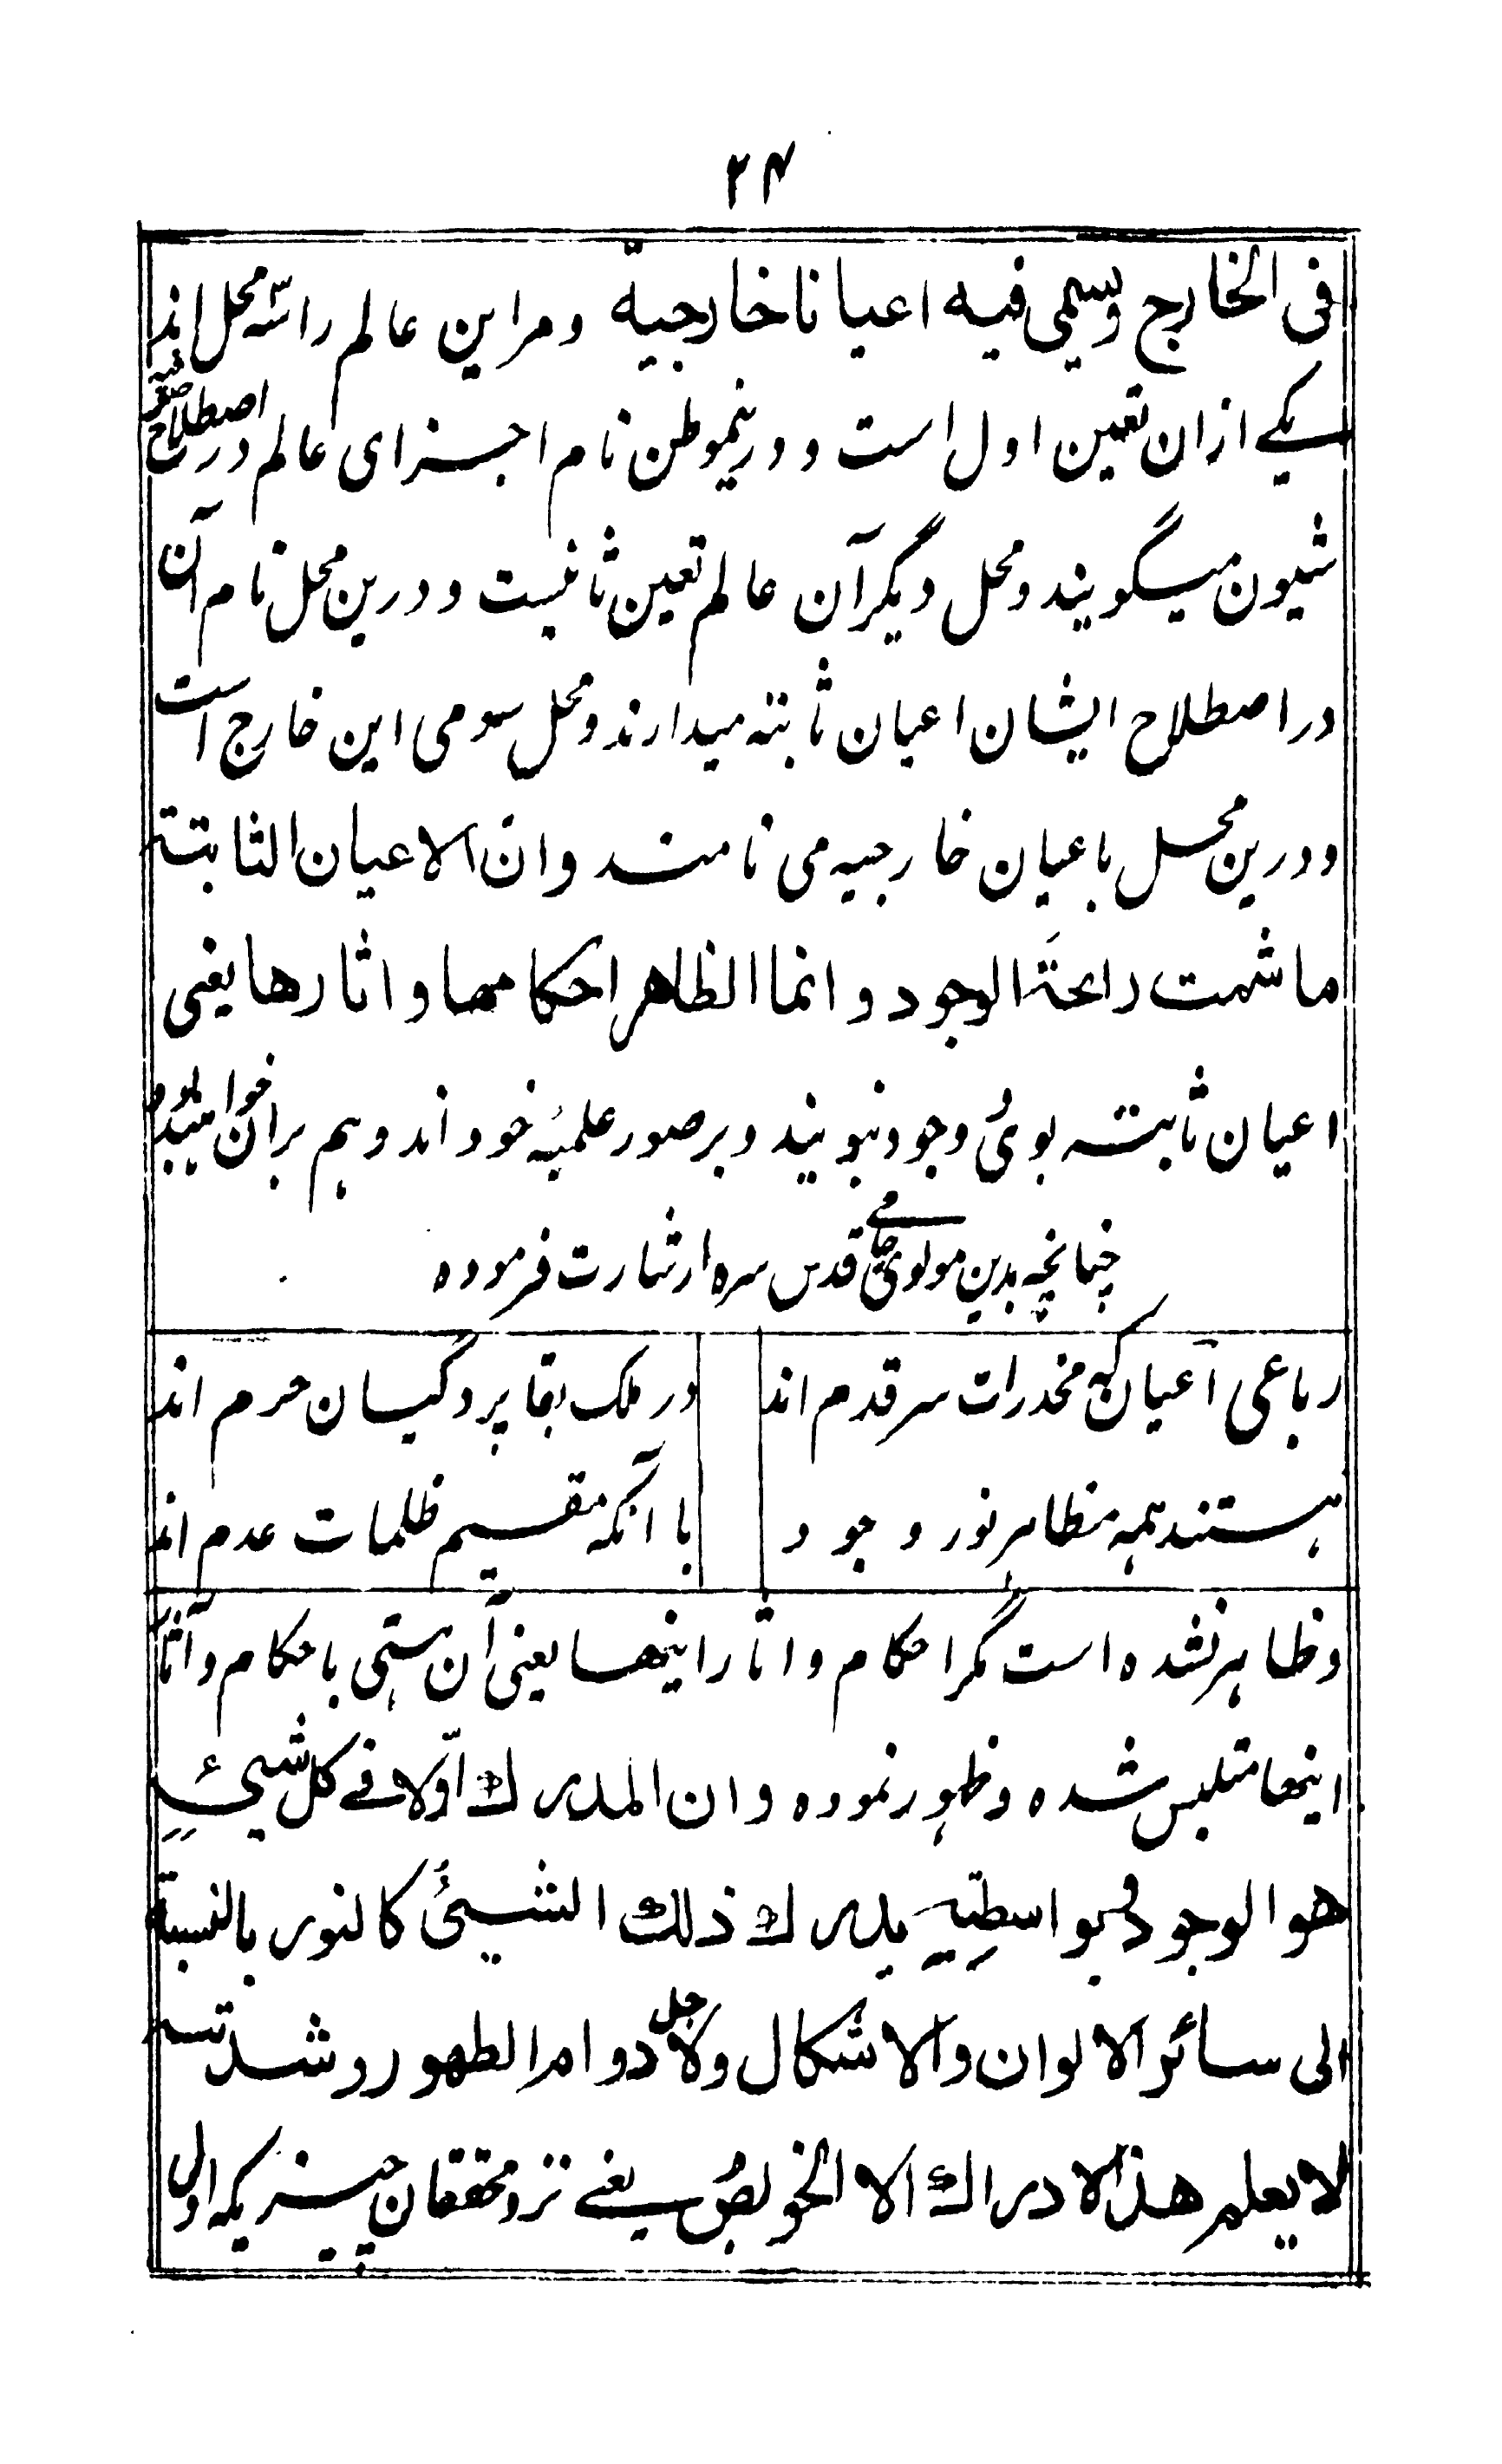 ۲۴
فی الخارج ویسمی فیه اعیانا خارجیة ومراین عالم راسّه محل اند
یکے ازان تعین اول است و درینموطن نام اجزای عالم در اصطلاح صوفیه
شیون میگویند و محل دیگر آن عالم تعین ثانیست و درین محل نام آن
در اصطلاح ایشان اعیان ثابته میدارند و محل سومی این خارج است
و درین محل باعیان خارجیه می نامند وانّ الاعیان الثابتة
ما شمت رائحةَ الوجود و انما الظاهر احکامها و اثارها یعنی
اعیان ثابته بوئ وجود نبویند و بر صور علمیۂ خود اند و هم بران خواهند بود
چنانچه بدین مولوی جامی قدس سره ارشارت فرموده
رباعی آعیان که مخدرات سر قدم اند
در ملک بقا پردگیان حرم اند
هستند همه مظاهر نور وجود
با آنکه مقیم ظلمات عدم اند
و ظاهر نشده است مگر احکام و اثار اینها یعنی آن هستی باحکام و آثار
اینها متلبس شده و ظهور نموده و ان المدرك اوّلا فے کل شیئٍ
هو الوجود وبواسطتِهِ یدرك ذلك الشیئُ کالنور بالنسبة
الی سائر الالوان والاشکال ولاجل دوام الظهور و شدته
لا یعلم هذا الادراك الا الخواصُ یعنے نزد محققان چیزیکه اول